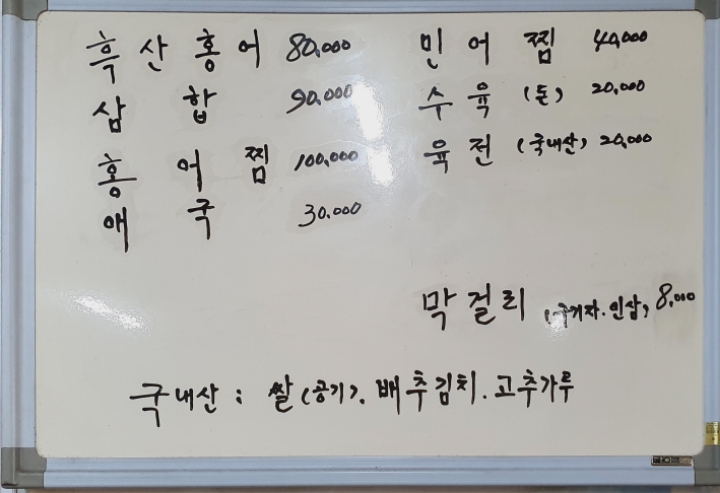 흑산홍어 80,000
삼합 90,000
홍어찜 100,000
애국 30,000
민어찜 40,000
수육 (돈) 20,000
육전 (국내산) 20,000
막걸리 (구기자.인삼) 8,000
국내산 : 쌀(공기). 배추김치. 고추가루